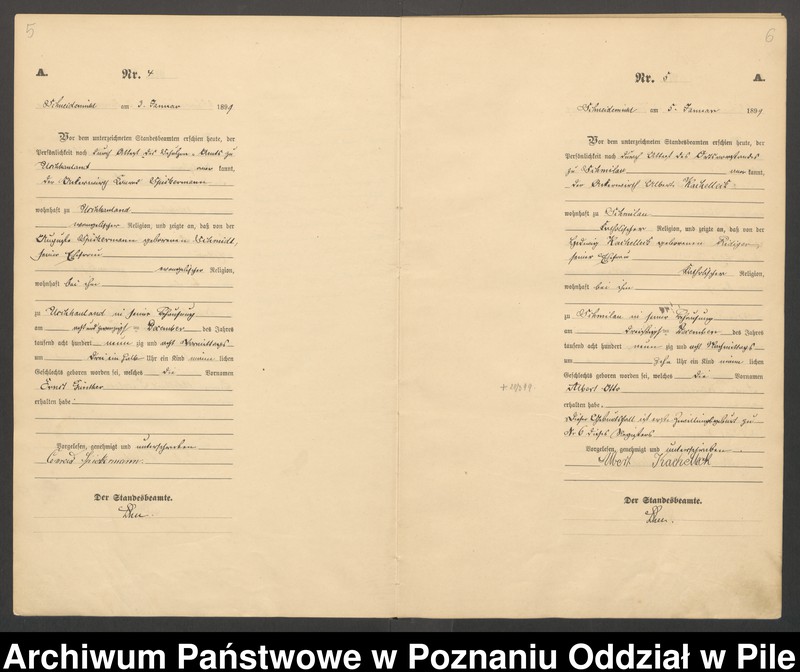 5
A.
Nr. 4
Schneidemühl am 3. Januar 1899
Vor dem unterzeichneten Standesbeamten erschien heute, der
Persönlichkeit nach durch Attest des Schulzen-Amts zu
Uschhauland kannt,
der Ackerwirth Spickermann
wohnhaft zu Uschhauland
evangelischer Religion, und zeigte an, daß von der
Auguste Spickermann geborenen Schmidt,
seiner Ehefrau
evangelischer Religion,
wohnhaft bei ihm
zu Uschhauland in seiner Behausung
am acht und zwanzigsten Dezember des Jahres
tausend acht hundert neunzig und acht Vormittags
um Uhr ein Kind männlichen
Geschlechts geboren worden sei, welches die Vornamen
Ernst Günther
erhalten habe.
Vorgelesen, genehmigt und unterschrieben
Spickermann.
Der Standesbeamte.
6
Nr. 5
A.
Schneidemühl am 5. Januar 1899
Vor dem unterzeichneten Standesbeamten erschien heute, der
Persönlichkeit nach durch Attest des Gutsvorstandes
zu Schmilau kannt,
der Ackerwirth Albert Kachelleck
wohnhaft zu Schmilau
katholischer Religion, und zeigte an, daß von der
Hedwig Kachelleck geborenen Rüdiger
seiner Ehefrau
katholischer Religion,
wohnhaft bei ihm
zu Schmilau in seiner Behausung
am dreißigsten Dezember des Jahres
tausend acht hundert neunzig und acht Nachmittags
um zehn Uhr ein Kind männlichen
Geschlechts geboren worden sei, welches die Vornamen
Albert Otto
erhalten habe.
Dieser Geburtsfall ist erste Zwillingsgeburt zu
Nr 6 dieses Registers
Vorgelesen, genehmigt und unterschrieben
Albert Kachelleck
Der Standesbeamte.
Archiwum Państwowe w Poznaniu Oddział w Pile